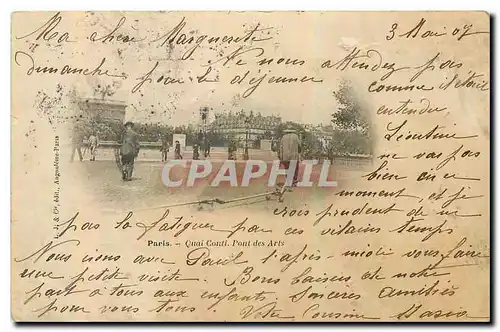 3 Mai 07
Ma chère Marguerite
Ne nous attendez pas
dimanche pour le déjeuner
comme c'était
entendu
Léontine
ne va pas
bien en ce
moment, et je
crois prudent de ne
pas la fatiguer par ces vilains temps
Paris. - Quai Conti. Pont des Arts
Nous irons avec Paul l'après-midi vous faire
une petite visite. Bons baisers de notre
part à tous aux enfants. Sincères amitiés
pour vous tous. Votre cousine
CAPRIA PHM